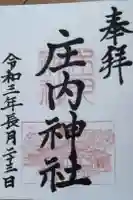 奉拝
庄内神社
令和三年長月二十三日